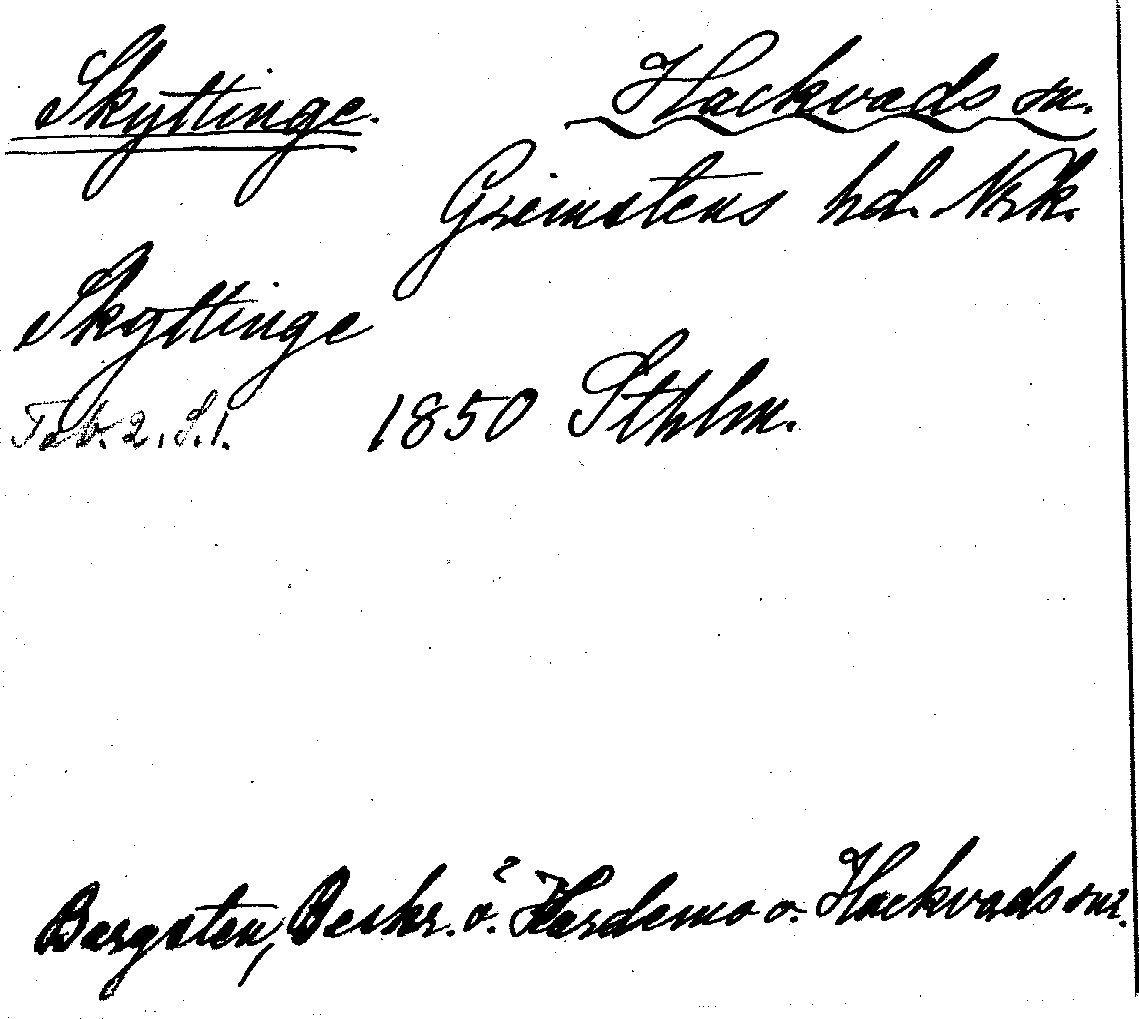 Skyttinge. Hackvads sn.
Grimstens hd. Nrk.
Skyttinge
Tab. 2. S. 1. 1850 Sthlm.
Bergsten, Beskr. ö. Hardemo o. Hackvads snr.